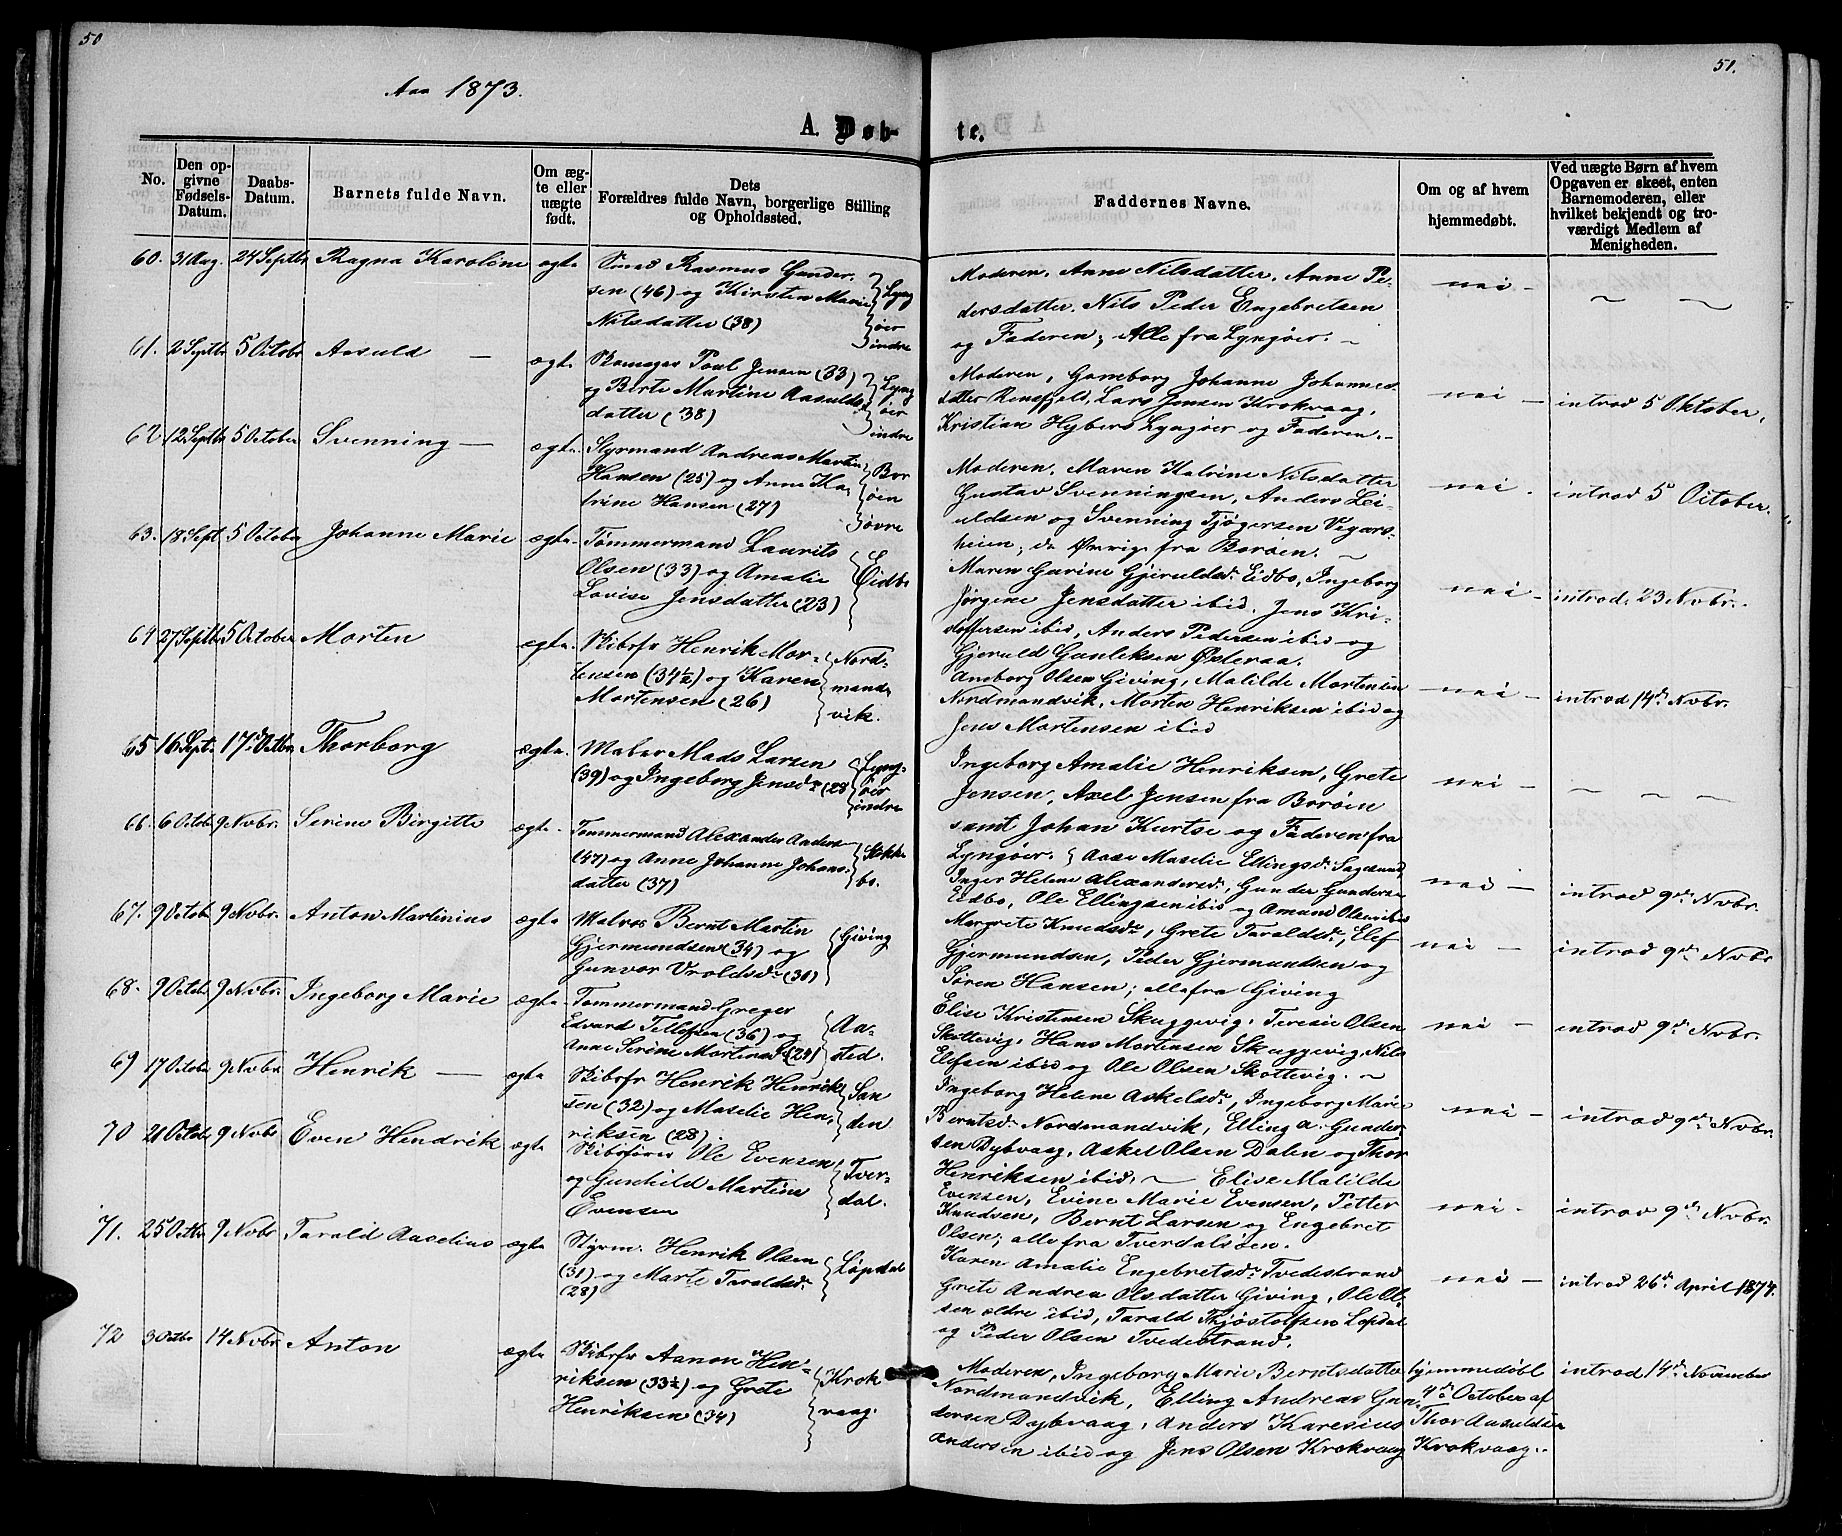 50
51.
Aar 1873.
A. Døb-
te.
No.
Den op-
givne
Fødsels-
Datum.
Daabs-
Datum.
Barnets fulde Navn.
Om æg-
te eller
uægte
født.
Dets
Forældres fulde Navn, borgerlige Stilling
og Opholdssted.
Faddernes Navne.
Om og af hvem
hjemmedøbt.
Ved uægte Børn af hvem
Opgaven er skeet, enten
Barnemoderen, eller
hvilket bekjendt og tro-
værdigt Medlem af
Menigheden.
60. 31 Aug. 24 Septbr Ragna Karoline ægte
Smed Rasmus Gunder-
sen (46) og Kirsten Marie
Nilsdatter (38)
Lyng
öer
indre
Moderen, Anne Nilsdatter, Anne Pe-
dersdatter, Nils Peder Engebretsen
og Faderen; Alle fra Lyngöer. –
nei –
61. 2 Septbr 5 Octobr Aasuld – ægte.
Skomager Poul Jensen (33)
og Berte Martine Aasulds
datter (38)
Lyng
öer
indre
Moderen, Gomeborg Johanne Johannes
datter Rensfjeld, Lars Jensen Krokvaag,
Kristian Hybers Lyngöer og Faderen. –
nei –
introd 5 Oktober.
62 12 Septbr 5 October Svenning – ægte.
Styrmand Andreas Martin
Hansen (25) og Anne Ka-
trine Hansen (27)
Bor
öen
övre
Moderen, Maren Katrine Nilsdatter
Gustav Svenningsen, Anders Lei-
uldsen og Svenning Tjøgersen Vegars-
heien; de Øvrige fra Boröen. –
nei .
introd 5 October.
63. 18 Sept 5 October Johanne Marie ægte.
Tømmermand Laurits
Olsen (33) og Amalie
Lovise Jensdatter (23)
Eidbo
Maren Gurine Gjeruldsdr Eidbo, Ingeborg
Jørgene Jensdatter ibid, Jens Kri-
stoffersen ibid, Anders Pedersen ibid og
Gjeruld Gunleksen Østeraa.
nei –
introd. 23 Nvbr.
64 27 Septbr 5 October Morten ægte.
Skibsfr Henrik Mor-
tensen (34½) og Karen
Mortensen (26)
Nord-
mands
vik.
Aneborg Olsen Giving, Matilde Mortensen
Nordmandvik, Morten Henriksen ibid og
Jens Mortensen ibid
– nei –
introd 14de Nvbr.
65 16 Sept. 17de Octbr Thorborg ægte.
Maler Mads Larsen
(39) og Ingeborg Jensdr (28
Lyng-
öer
indre
Ingeborg Amalie Henriksen, Grete
Jensen, Axel Jensen fra Boröen
samt Johan Kurtse og Faderen fra
Lyngöer.
nei –
66. 6 Octbr 9 Nvbr. Serine Birgitte ægte.
Tømmermand Alexander Anders
(47) og Anne Johanne Johans-
datter (37)
Stokke
bo.
Aase Maselie Ellingsdr Sagesund
Inger Helene Alexandersdr, Gunder Gundersen
Eidbo, Ole Ellingsen ibid og Amund Olsen ibid
nei –
introd 9de Nvbr.
67. 9 Octobr 9 Nvbr. Anton Martinius ægte
Matros Bernt Martin
Gjermundsen (34) og
Gunvor Uroldsdr (30)
Giving
Margrete Knudsdr, Grete Taraldsdr, Elef
Gjermundsen, Peder Gjermundsen og
Søren Hansen; alle fra Giving
nei –
introd 9de Nvbr
68. 9 Octbr 9 Nvbr. Ingeborg Marie ægte
Tømmermand Greger
Edvard Tellefsen (36) og
Anne Serine Mortensdr (24)
Aa-
sted.
Elise Kristensen Skuggevig, Teresie Olsen
Skottevig, Hans Mortensen Skuggevig, Nils
Elefsen ibid og Ole Olsen Skottevig. –
nei –
introd 9de Nvbr.
69 17 Octobr 9 Nvbr Henrik – ægte
Skibsfr Henrik Henrik
sen (32) og Maselie Hen-
riksen (28).
San
den
Ingeborg Helene Askelsdr, Ingeborg Marie
Berntsdr Nordmandvik, Elling A. Gunder-
sen Dybvaag, Askel Olsen Dalen og Thor
Henriksen ibid. –
nei –
introd 9de Nvbr.
70 21 Octbr 9 Nvbr Even Hendrik ægte
Skibsfører Ole Evensen
og Gunhild Martine
Evensen
Tver-
dal.
Elise Matilde
Evensen, Evine Marie Evensen, Petter
Knudsen, Bernt Larsen og Engebret
Olsen; alle fra Tverdalsöen.
nei –
introd 9de Nvbr.
71. 25 Octbr 9 Nvbr Tarald Aaselius ægte
Styrm. Henrik Olsen
(31) og Marte Taraldsdr
(28)
Löpdal
Karen Amalie Engebretsdr Tvedestrand
Grete Andrea Olsdatter Giving, Ole Ol-
sen ældre ibid, Tarald Thjøstolfsen Lopdal
og Peder Olsen Tvedestrand.
nei –
introd 26de April 1874.
72 3 Octbr 14 Nvbr. Anton ægte
Skibsfr Aanon Hen-
riksen (33½) og Grete
Henriksen (34)
Krok
vaag.
Moderen, Ingeborg Marie Berntsdatter
Nordmandvik, Elling Andreas Gun-
dersen Dybvaag, Anders Karesius
Andersen ibid og Jens Olsen Krokvaag
hjemmedøbt
4de October af
Thor Aasuldsen
Krokvaag.
introd 14de November